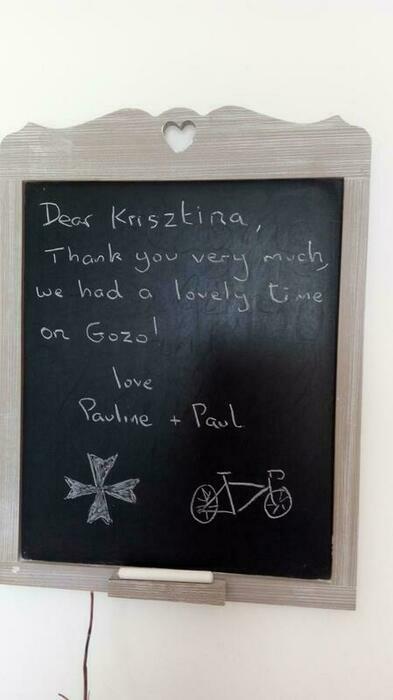 Dear Krisztina,
Thank you very much,
we had a lovely time
on Gozo!
love
Pauline + Paul